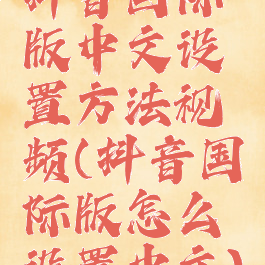 抖音国际
版中文设
置方法视
频(抖音国
际版怎么
设置中文)